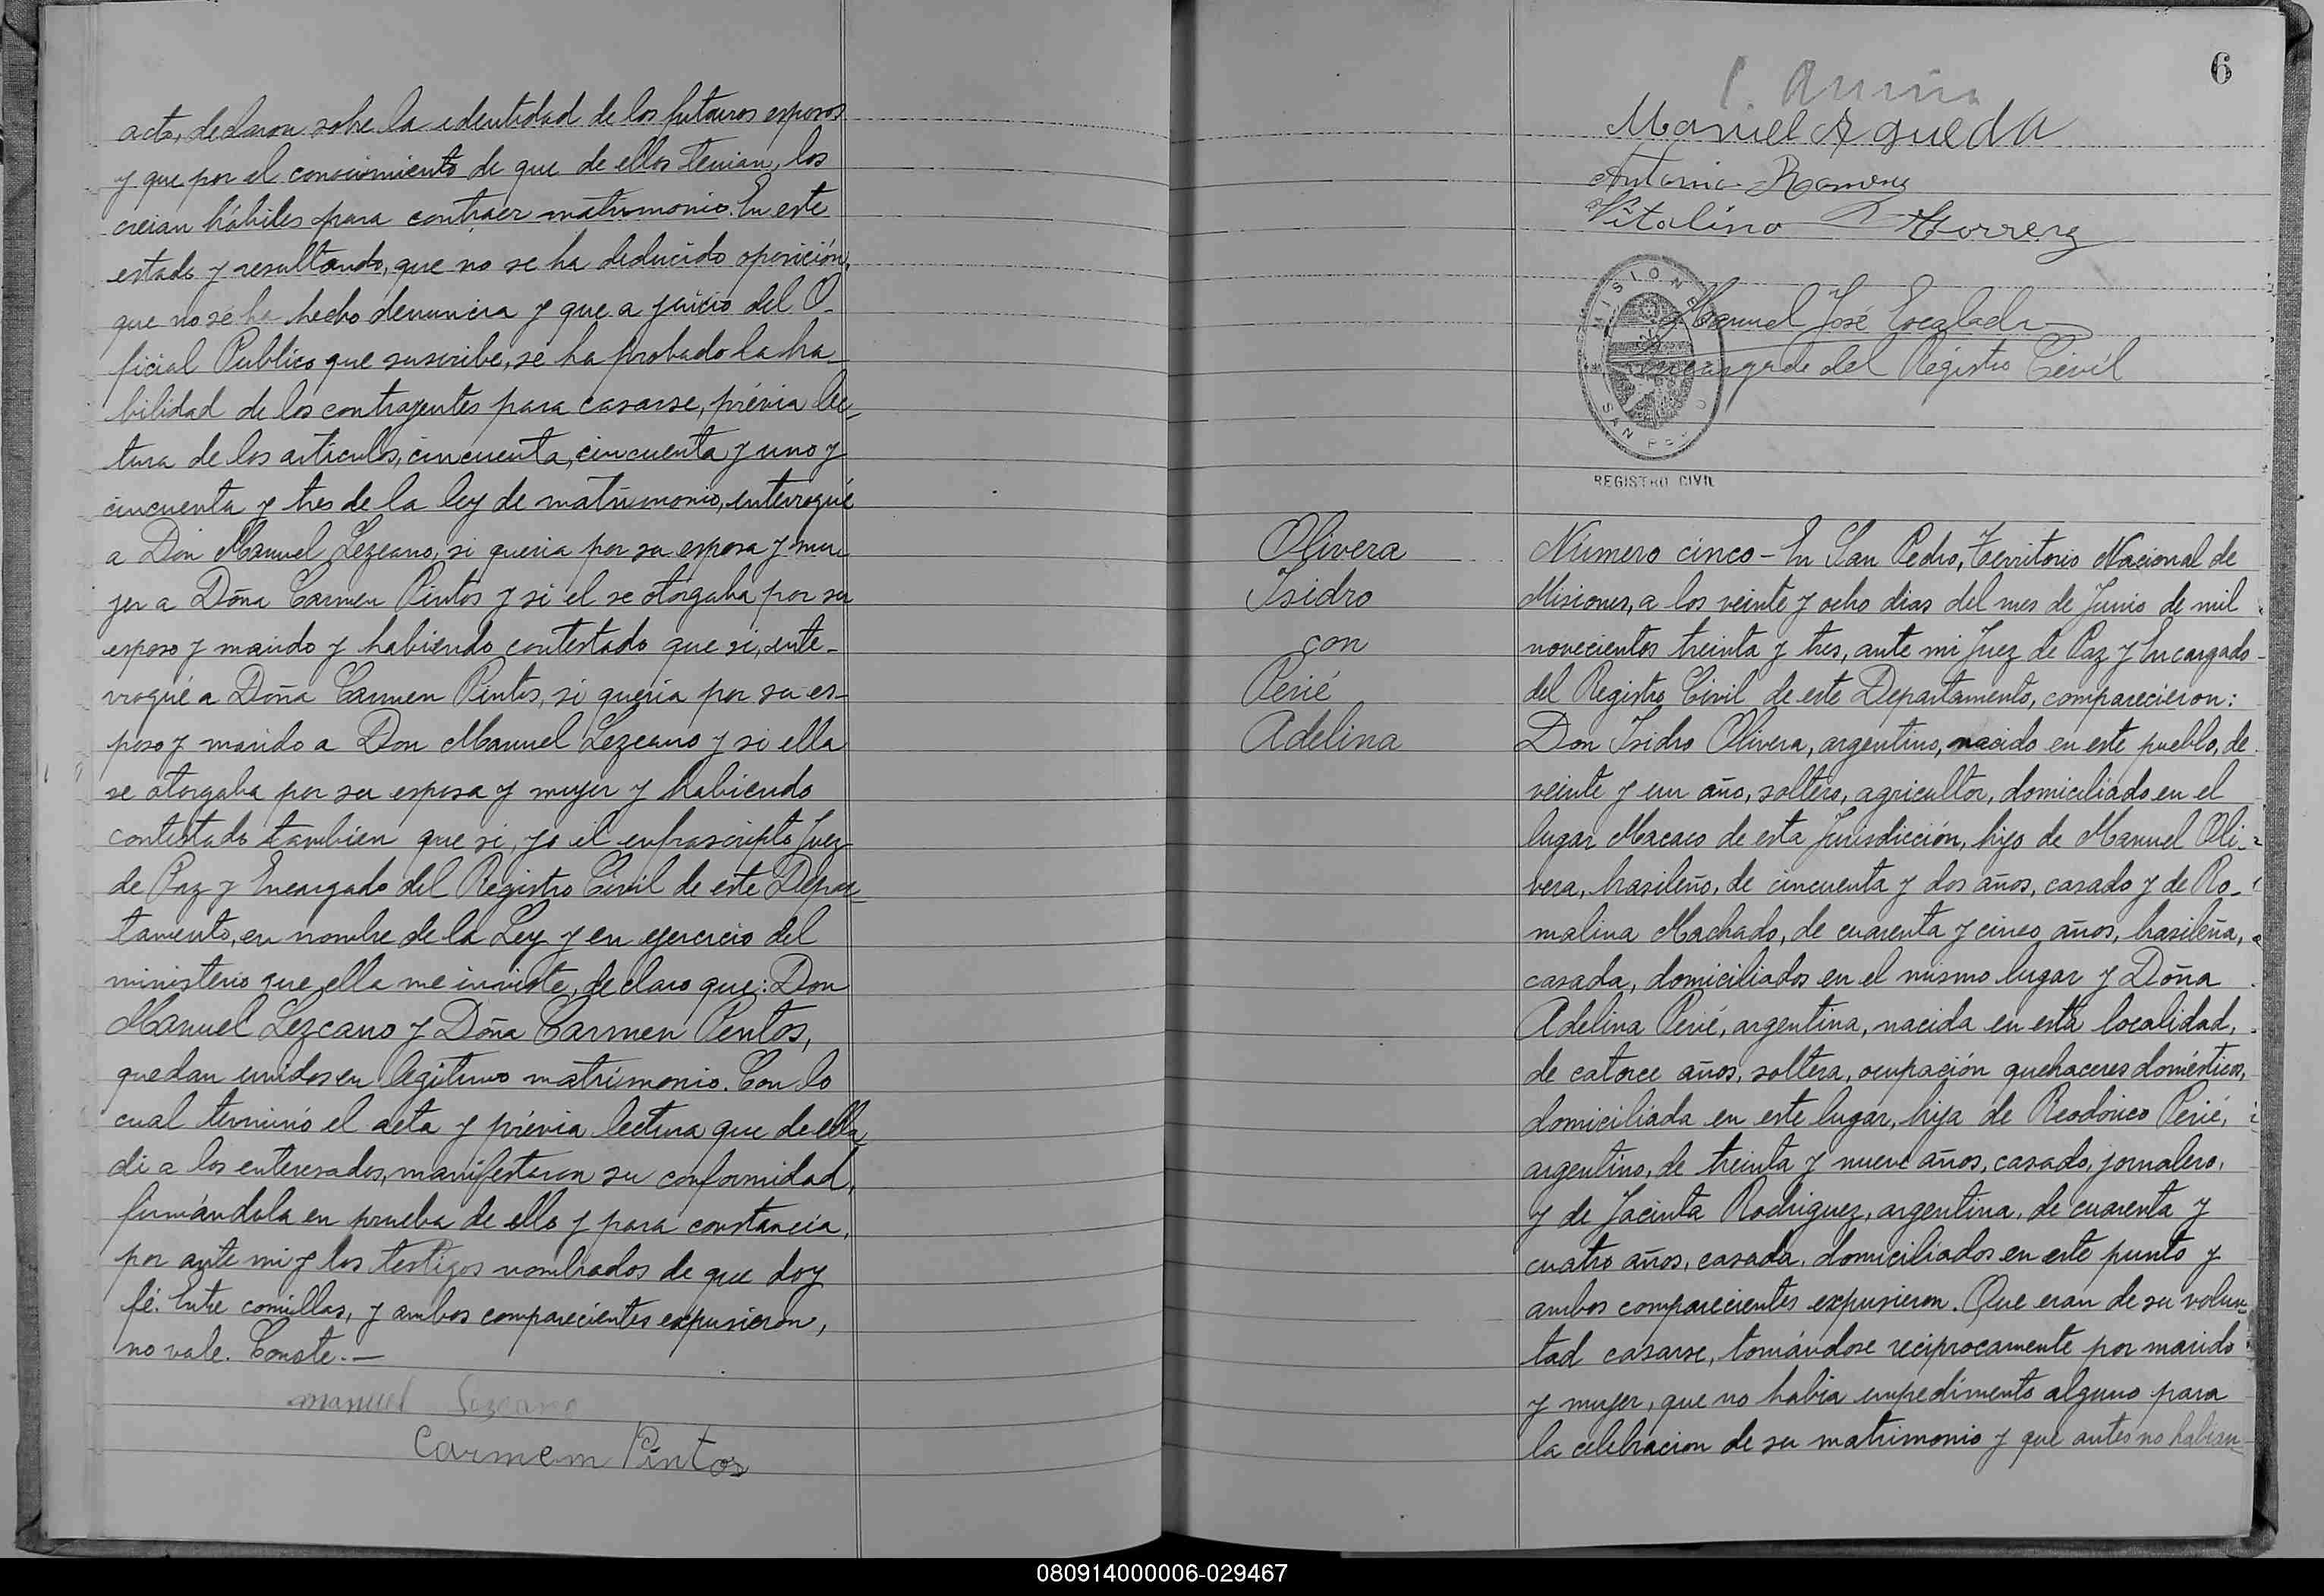 acto, declaron sobre la identidad de los futuros esposos
y que por el conocimiento de que de ellos tenian, los
creian hábiles para contraer matrimonio. En este
estado y resultando, que no se ha deducido oposición,
que no se ha hecho denuncia y que a juicio del O-
ficial Publico que suscribe, se ha probado la ha-
bilidad de los contrayentes para casarse, prévia lec-
tura de los artículos, cincuenta, cincuenta y uno y
cincuenta y tres de la ley de matrimonio, interrogué
a Don Manuel Lezcano, si queria por su esposa y mu-
jer a Doña Carmen Pintos y si el se otorgaba por su
esposo y marido y habiendo contestado que si, inte-
rrogué a Doña Carmen Pintos, si quería por su es-
poso y marido a Don Manuel Lezcano y si ella
se otorgaba por su esposa y mujer y habiendo
contestado tambien que si, yo el infrascripto Juez
de Paz y Encargado del Registro Civil de este Depar-
tamento, en nombre de la Ley y en ejercicio del
ministerio que ella me inviste, declaro que: Don
Manuel Lezcano y Doña Carmen Pintos,
quedan unidos en legítimo matrimonio. Con lo
cual terminó el acta y prévia lectura que de ella
di a los interesados, manifestaron su conformidad,
firmándola en prueba de ello y para constancia,
por ante mi y los testigos nombrados de que doy
fé. Entre comillas, y ambos comparecientes expusieron,
no vale. Conste.—
manuel Lezcano
Carmem Pintos
6
Manuel Agueda
Antonio Ramos
Vitalino Ferreira
Manuel José Escalada
Encargado del Registro Civil
MISIONES
SAN PEDRO
REGISTRO CIVIL
Olivera
Isidro
con
Perié
Adelina
Número cinco - En San Pedro, Territorio Nacional de
Misiones, a los veinte y ocho dias del mes de Junio de mil
novecientos treinta y tres, ante mi Juez de Paz y Encargado
del Registro Civil de este Departamento, comparecieron:
Don Isidro Olivera, argentino, nacido en este pueblo, de
veinte y un año, soltero, agricultor, domiciliado en el
lugar Macaco de esta Jurisdicción, hijo de Manuel Oli-
vera, brasileño, de cincuenta y dos años, casado y de Ro-
malina Machado, de cuarenta y cinco años, brasileña,
casada, domiciliados en el mismo lugar y Doña
Adelina Perié, argentina, nacida en esta localidad,
de catorce años, soltera, ocupación quehaceres domésticos,
domiciliada en este lugar, hija de Reodorico Perié,
argentino, de treinta y nueve años, casado, jornalero,
y de Jacinta Rodriguez, argentina, de cuarenta y
cuatro años, casada, domiciliados en este punto y
ambos comparecientes expusieron. Que eran de su volun-
tad casarse, tomándose reciprocamente por marido
y mujer, que no habia impedimento alguno para
la celebracion de su matrimonio y que antes no habian
080914000006-029467